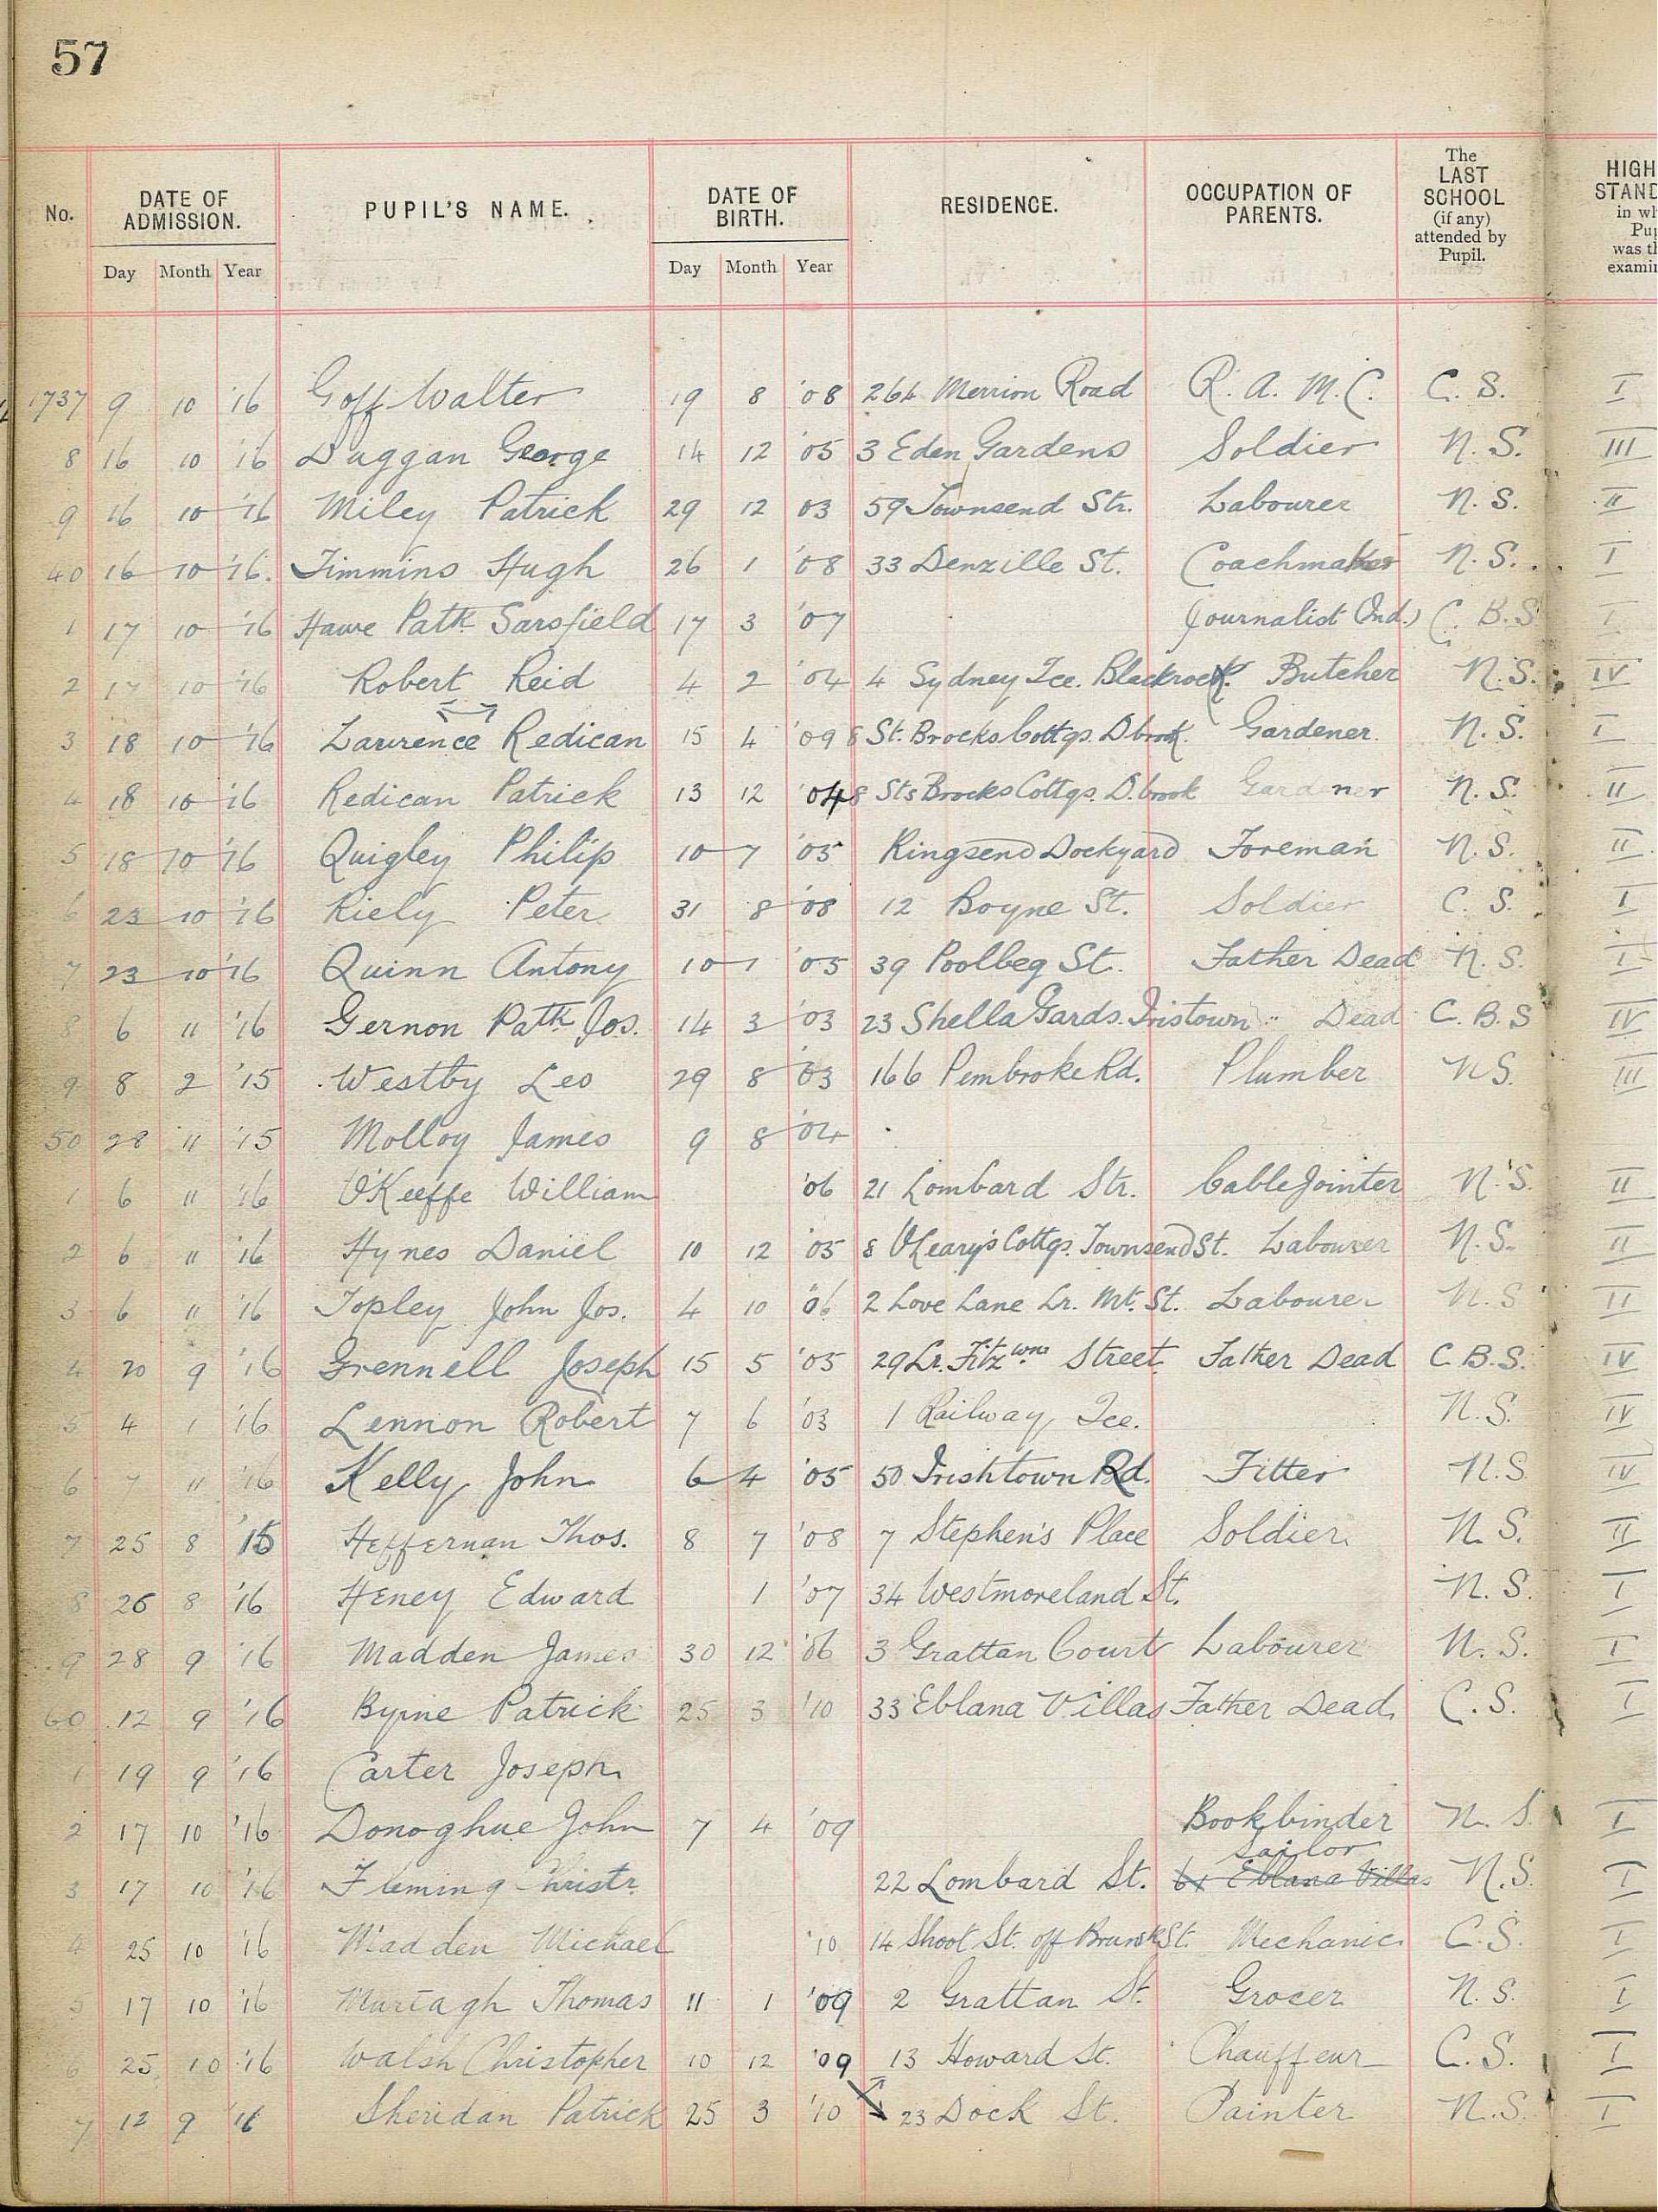 57
No. DATE OF ADMISSION. PUPIL'S NAME. DATE OF BIRTH. RESIDENCE. OCCUPATION OF PARENTS. The LAST SCHOOL (if any) attended by Pupil. HIGH STAND in wh Pup was th examin
Day Month Year Day Month Year
1737 9 10 '16 Goff Walter 19 8 '08 264 Merrion Road R. A. M. C. C. S. I
8 16 10 '16 Duggan George 14 12 '05 3 Eden Gardens Soldier N. S. III
9 16 10 '16 Miley Patrick 29 12 03 59 Townsend Str. Labourer N. S. II
40 16 10 '16. Timmins Hugh 26 1 '08 33 Denzille St. Coachmaker N. S. I
1 17 10 '16 Hawe Patk Sarsfield 17 3 '07 Journalist (Ind.) C. B. S I
2 17 10 '16 Robert Reid 4 2 '04 4 Sydney Tce. Blackrock. Butcher N. S. IV
3 18 10 '16 Lawrence Redican 15 4 '09 8 St. Brocks Cottgs. Dbrook. Gardener. N. S. I
4 18 10 '16 Redican Patrick 13 12 '04 8 Sts Brocks Cottgs. D.brook Gardener N. S. II
5 18 10 '16 Quigley Philip 10 7 '05 Ringsend Dockyard Foreman N. S. II
6 23 10 '16 Riely Peter 31 8 '08 12 Boyne St. Soldier C. S. I
7 23 10 '16 Quinn Antony 10 1 '05 39 Poolbeg St. Father Dead N. S. I
8 6 11 '16 Gernon Patk Jos. 14 3 '03 23 Shella Gards. Iristown " Dead C. B. S IV
9 8 2 '15 Westby Leo 29 8 '03 166 Pembroke Rd. Plumber N S. III
50 28 11 '15 Molloy James 9 8 '04
1 6 11 '16 O'Keeffe William '06 21 Lombard Str. Cable Jointer N. S. II
2 6 11 '16 Hynes Daniel 10 12 '05 8 O'Leary's Cottgs. Townsend St. Labourer N. S. II
3 6 11 '16 Topley John Jos. 4 10 '06 2 Love Lane Lr. Mt. St. Labourer N. S II
4 20 9 '16 Grennell Joseph 15 5 '05 29 Lr. Fitzwm Street. Father Dead C. B. S. IV
5 4 1 '16 Lennon Robert 7 6 '03 1 Railway Tce. N. S. IV
6 7 11 '16 Kelly John 6 4 '05 50 Irishtown Rd. Fitter N. S IV
7 25 8 '15 Heffernan Thos. 8 7 '08 7 Stephen's Place Soldier. N. S. II
8 26 8 '16 Heney Edward 1 '07 34 Westmoreland St. N. S. I
9 28 9 '16 Madden James 30 12 '06 3 Grattan Court Labourer N. S. I
60 12 9 '16 Byrne Patrick 25 3 '10 33 Eblana Villas Father Dead. C. S. I
1 19 9 '16 Carter Joseph
2 17 10 '16 Donoghue John 7 4 '09 Bookbinder N. S. I
Sailor
3 17 10 '16 Fleming Christr. 22 Lombard St. Eblana Villas N. S. I
4 25 10 '16 Madden Michael '10 14 Shoot St. off BrunskSt. Mechanic C. S. I
5 17 10 '16 Murtagh Thomas 11 1 '09 2 Grattan St. Grocer N. S. I
6 25 10 '16 Walsh Christopher 10 12 '09 13 Howard St. Chauffeur C. S. I
7 12 9 '16 Sheridan Patrick 25 3 '10 23 Dock St. Painter N. S. I